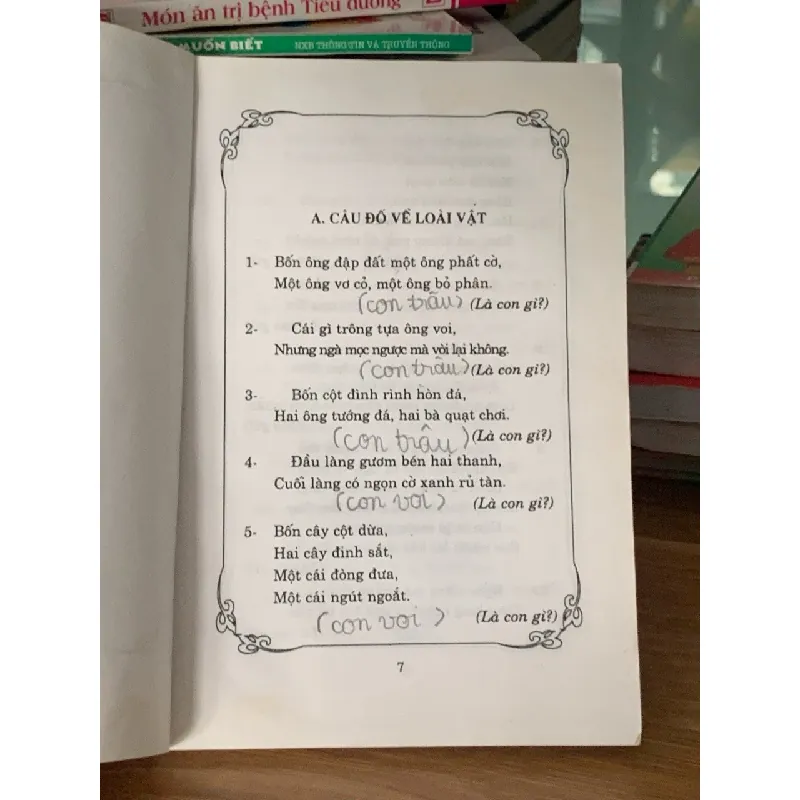 Món ăn trị bệnh Tiểu đường
MUỐN BIẾT NXB THÔNG TIN VÀ TRUYỀN THÔNG
A. CÂU ĐỐ VỀ LOÀI VẬT
1- Bốn ông đập đất một ông phất cờ,
Một ông vơ cỏ, một ông bỏ phân.
(con trâu) (Là con gì?)
2- Cái gì trông tựa ông voi,
Nhưng ngà mọc ngược mà vòi lại không.
(con trâu) (Là con gì?)
3- Bốn cột đình rình hòn đá,
Hai ông tướng đá, hai bà quạt chơi.
(con trâu) (Là con gì?)
4- Đầu làng gươm bén hai thanh,
Cuối làng có ngọn cờ xanh rủ tàn.
(con voi) (Là con gì?)
5- Bốn cây cột dừa,
Hai cây đinh sắt,
Một cái đòng đưa,
Một cái ngút ngoắt.
(con voi) (Là con gì?)
7